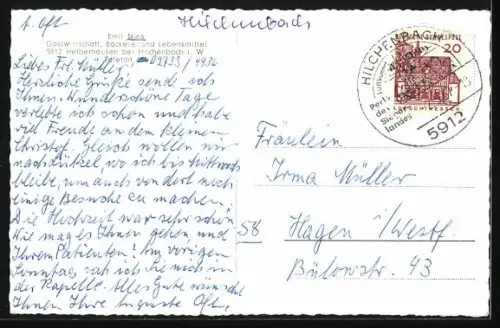 A. Oft
Hilchenbach
Emil
Gastwirtschaft, Bäckerei und Lebensmittel
5912 Helberhausen bei Hilchenbach i. W.
Telefon 02733/4436
Liebes Frl. Müller,
Herzliche Grüße sende ich
Ihnen. Wunderschöne Tage
verlebte ich schon und habe
viel Freude an dem kleinen
Christof. Gleich wollen wir
nach Lützel, wo ich bis Mittwoch
bleibe, um auch von dort noch
einige Besuche zu machen.
Die Hochzeit war sehr schön.
Wie mag es Ihnen gehen, und
Ihrem Patienten? Am vorigen
Sonntag sah ich Sie noch in
der Kapelle. Alles gute wünscht
Ihnen Ihre Auguste Oft.
HILCHENBACH
5912
Perle
des
Sieger-
landes
20
Fräulein
Irma Müller
58 Hagen i/Westf.
Bülowstr. 43